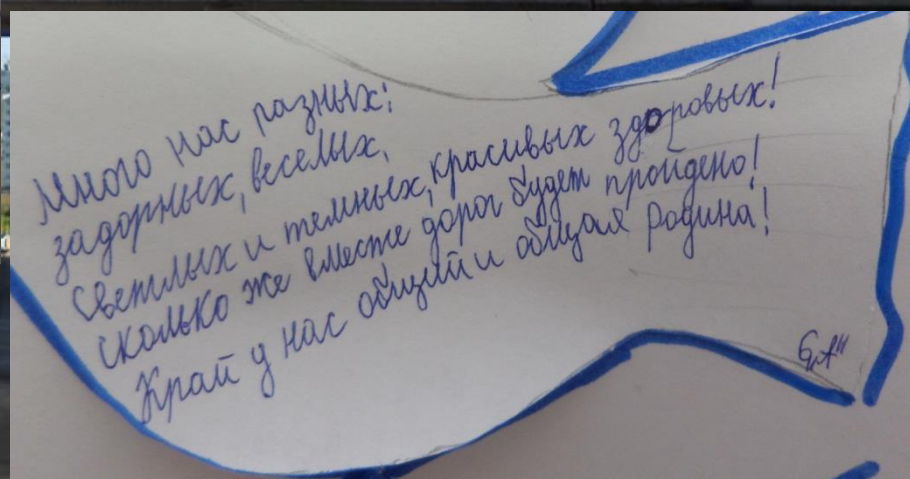 Много нас разных:
задорных, веселых,
Светлых и темных, красивых здоровых!
Сколько же вместе дорог будет пройдено!
Край у нас общий и общая Родина!